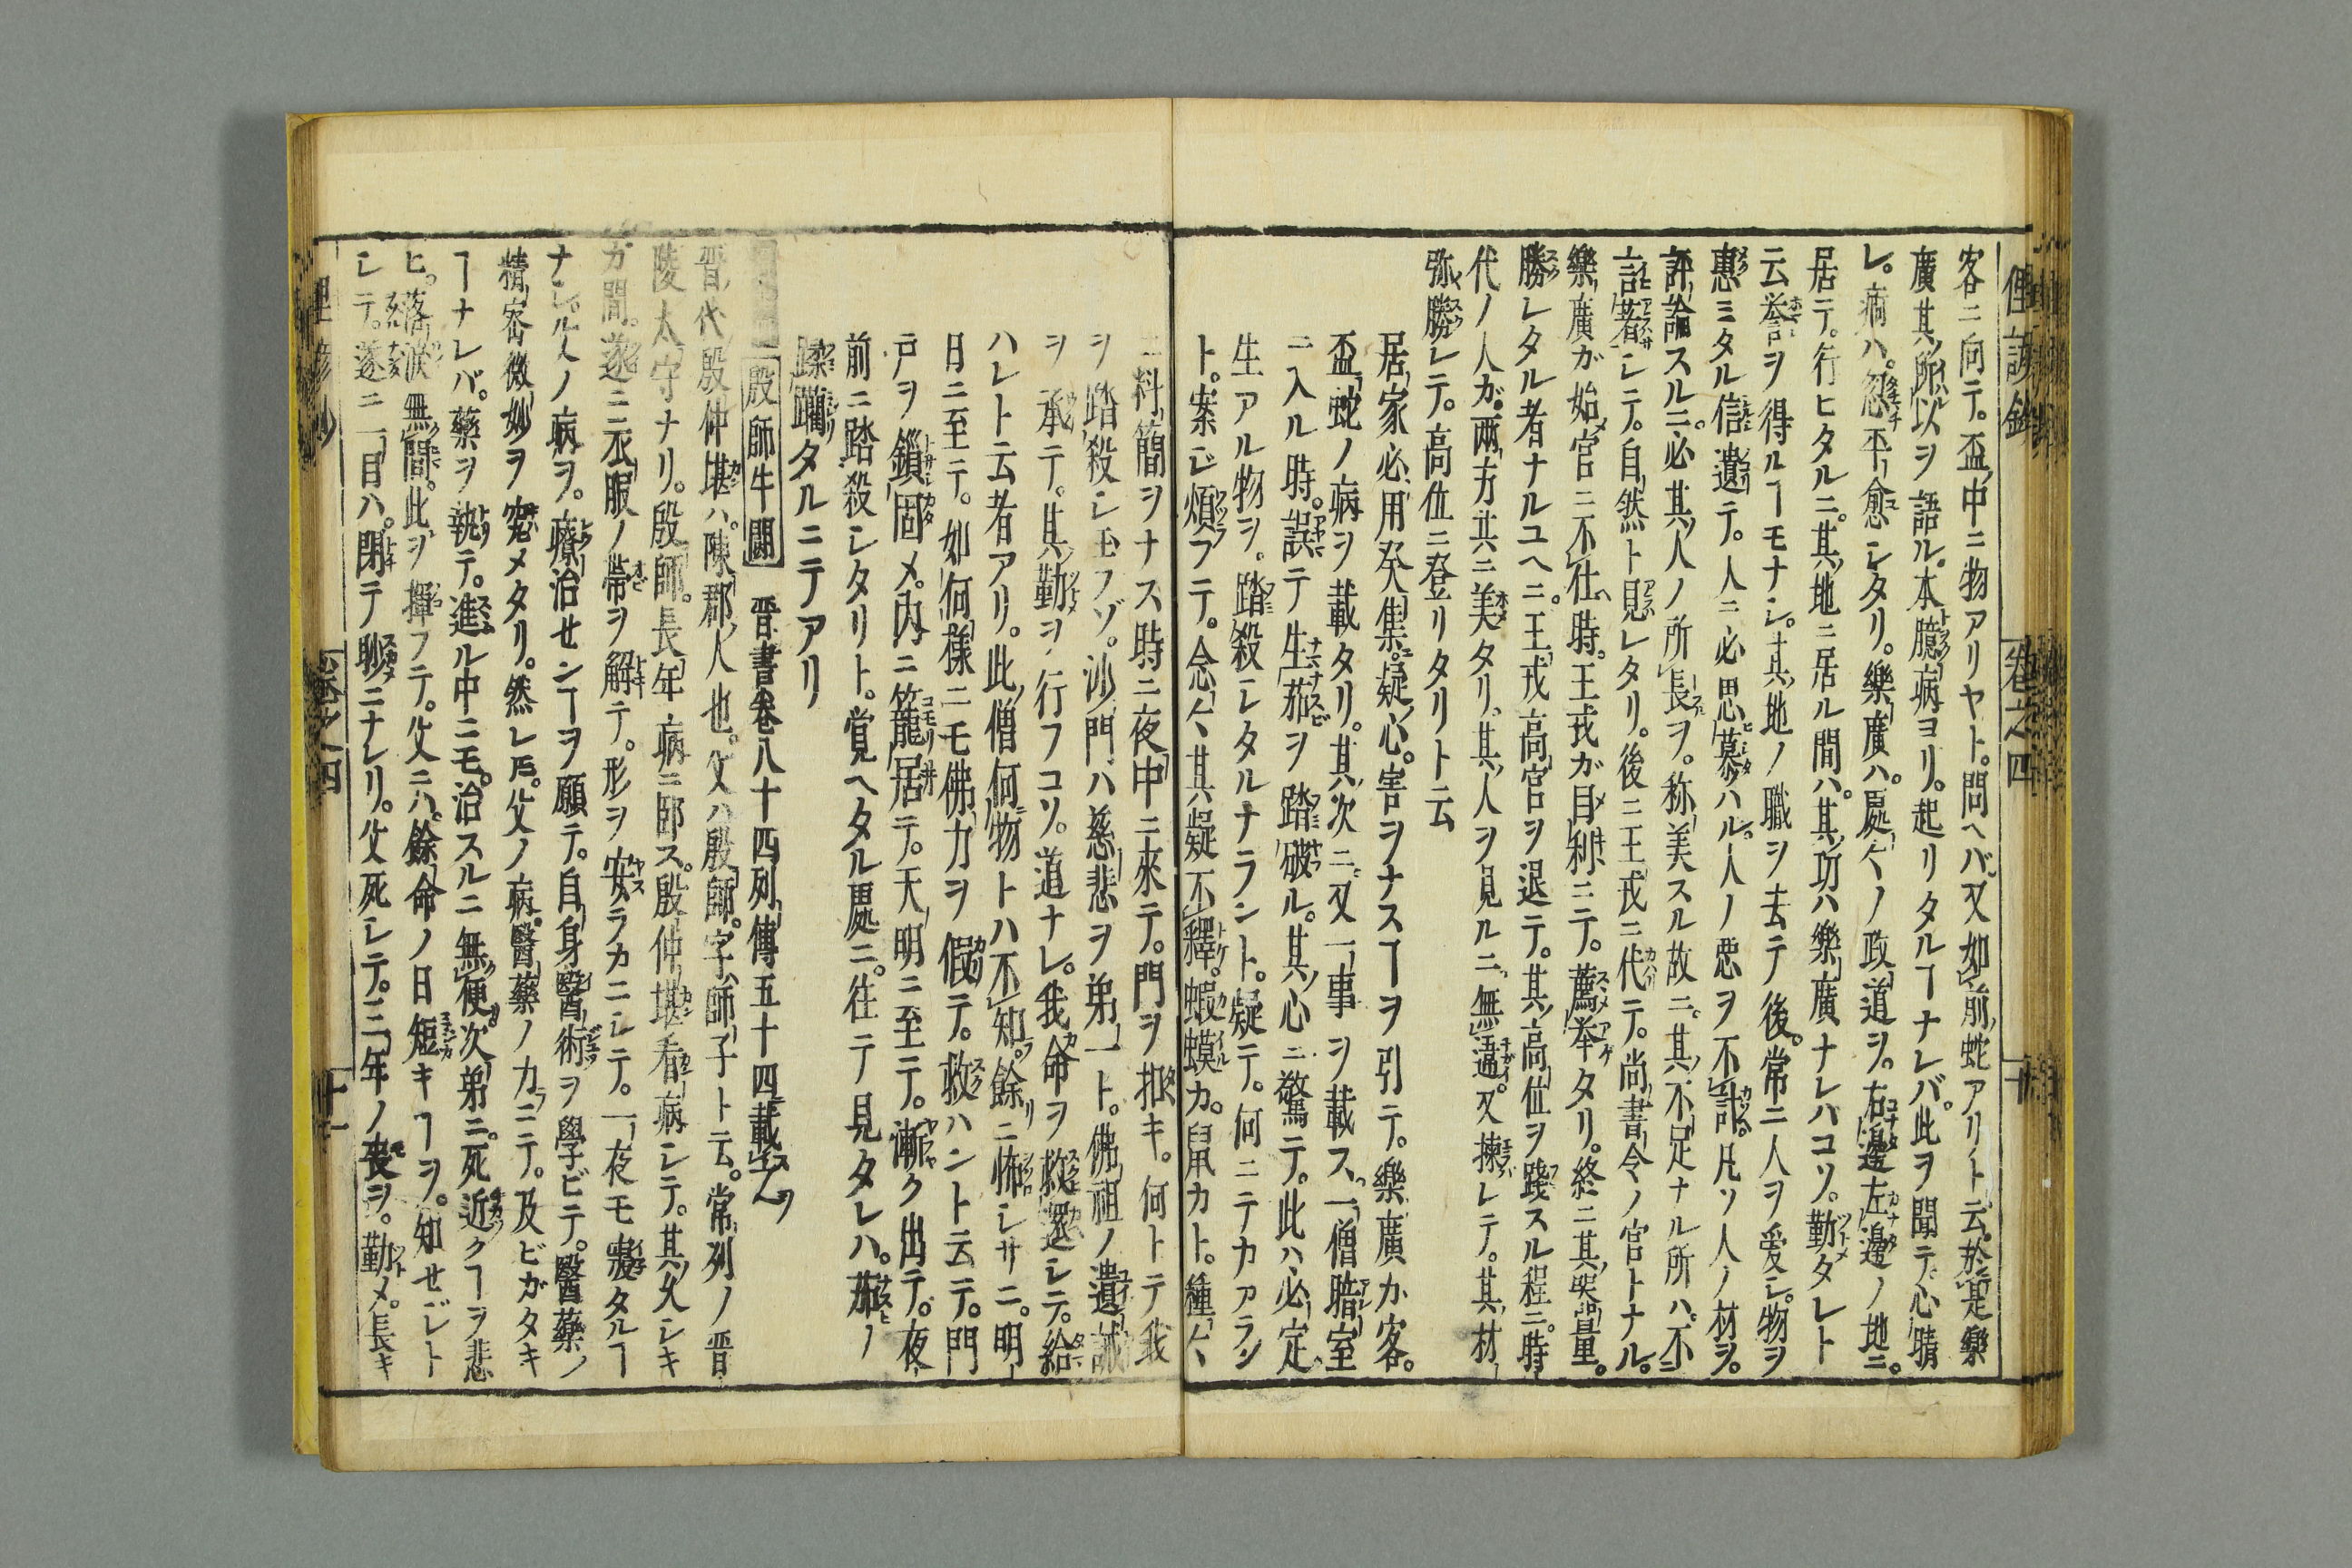 俚諺鈔 卷之四 十
客ニ向テ。盃中ニ物アリヤト。問ヘバ又如前蛇アリト云。於是樂
廣其所以ヲ語ル。本臆病ヨリ。起リタルヿナレバ。此ヲ聞テ心晴
レ。病ハ。忽平愈シタリ。樂廣ハ。處々ノ政道ヲ。右邊左邊ノ地ニ。
居テ。行ヒタルニ。其地ニ居ル間ハ。其功ハ樂廣ナレハコソ。勤タレト
云誉ヲ得ルヿモナシ。其地ノ職ヲ去テ後。常ニ人ヲ愛シ。物ヲ
惠ミタル信遺テ。人ニ必思慕ハル。人ノ悪ヲ不計。凡ソ人ノ材ヲ。
評論スルニ。必其人ノ所長ヲ。称美スル故ニ。其不足ナル所ハ。不
言著シテ。自然ト見レタリ。後ニ王戎ニ代テ。尚書令ノ官トナル。
樂廣ガ始官ニ不仕時。王戎ガ目利ニテ。薦挙タリ。終ニ其器量。
勝レタル者ナルユヘニ。王戎高官ヲ退テ。其高位ヲ踐スル程ニ。時
代ノ人ガ。兩方共ニ美タリ。其人ヲ見ルニ無違。又揀レテ。其材
弥勝レテ。高位ニ登リタリト云
居家必用癸集。疑心。害ヲナスヿヲ引テ。樂廣カ客。
盃蛇ノ病ヲ載タリ。其次ニ。又一事ヲ載ス。一僧暗室
ニ入ル時。誤テ生茄ヲ踏破ル。其心ニ驚テ。此ハ必定
生アル物ヲ。踏殺シタルナラント。疑テ。何ニテカアラン
ト。案ジ煩フテ。念々其疑不釋。蝦蟆カ。鼠カト。種々
ニ料簡ヲナス時ニ夜中ニ來テ。門ヲ扣キ。何トテ我
ヲ踏殺シ玉フゾ。沙門ハ慈悲ヲ第一ト。佛祖ノ遺誡
ヲ承テ。其勤ヲ行フコソ。道ナレ。我命ヲ救還シテ。給
ハレト云者アリ。此僧何物トハ不知。餘ニ怖シサニ。明
日ニ至テ。如何様ニモ佛力ヲ假テ。救ハント云テ。門
戸ヲ鎖固メ。内ニ籠居テ。天明ニ至テ。漸ク出テ。夜
前ニ踏殺シタリト。覚ヘタル處ニ。往テ見タレハ。茄ノ
蹂躙タルニテアリ
殷師牛鬭 晋書卷八十四列傳五十四載之
晋代殷仲堪ハ。陳郡人也。父ハ殷師。字師子ト云。常列ノ晋
陵太守ナリ。殷師。長年病ニ臥ス。殷仲堪看病シテ。其久シキ
カ間。遂ニ衣服ノ帯ヲ解テ。形ヲ安ラカニシテ。一夜モ寢タルヿ
ナシ。父ノ病ヲ。療治センヿヲ願テ。自身醫術ヲ學ビテ。醫藥ノ
精密微妙ヲ究メタリ。然レ𪜈。父ノ病。醫藥ノ力ニテ。及ビガタキ
ヿナレバ。藥ヲ執テ。進ル中ニモ。治スルニ無便次第ニ。死近クヿヲ悲
ヒ。落涙無間。此ヲ揮フテ。父ニハ。餘命ノ日短キヿヲ。知セジト
シテ。遂ニ一目ハ。閉テ眇ニナレリ。父死シテ。三年ノ喪ヲ。勤メ。長キ
卷之四 十一